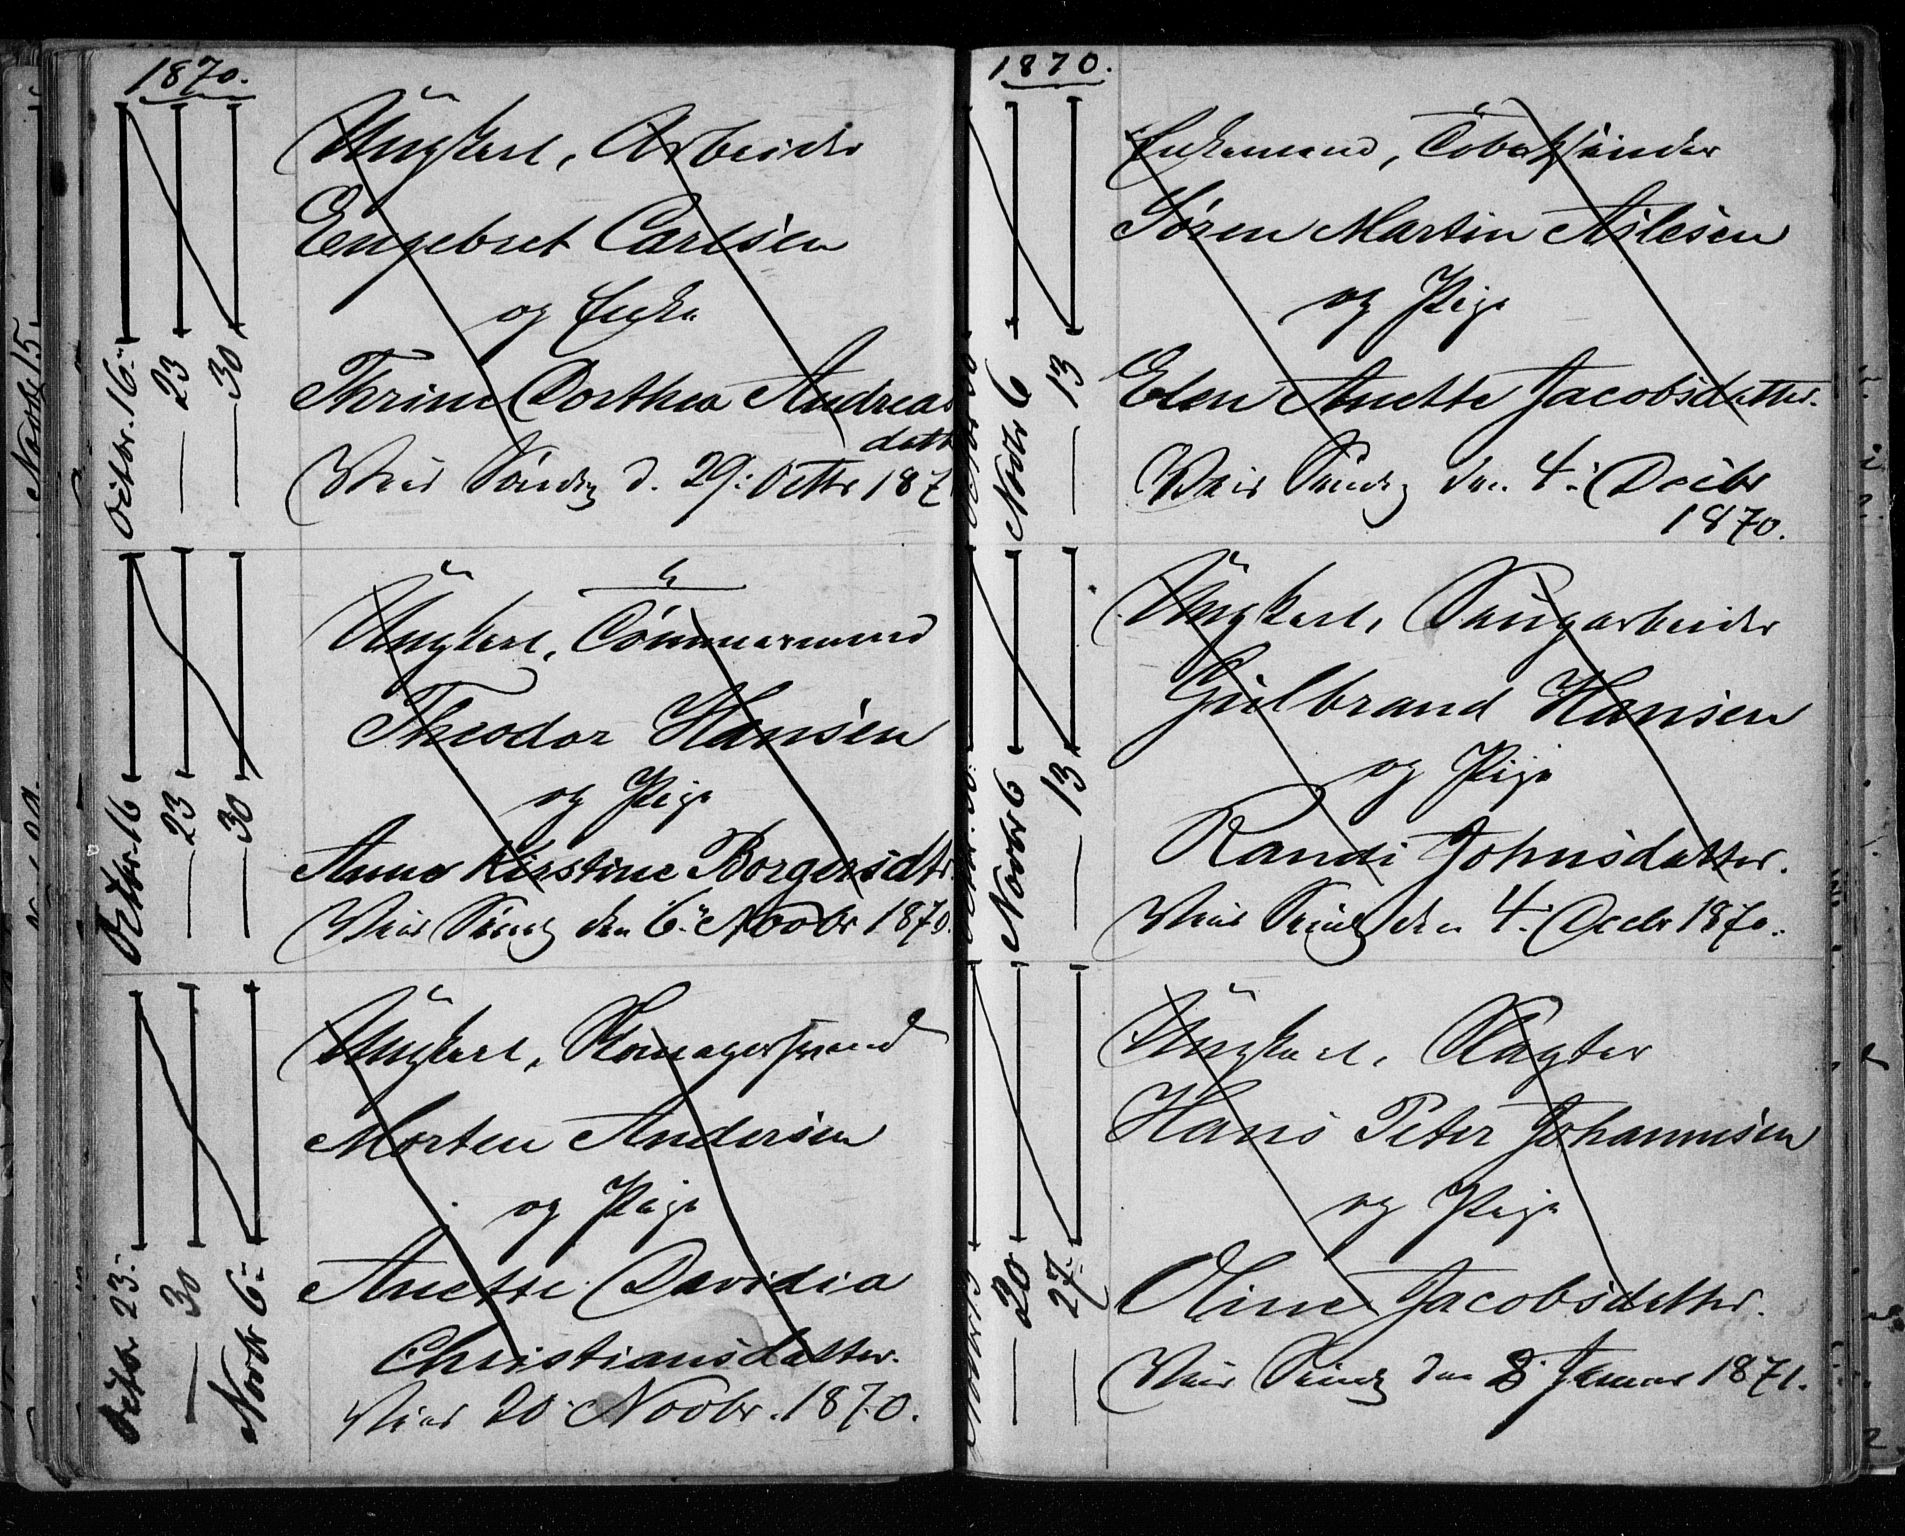 1870.
Octbr. 16.
23
30
Ungkarl, Arbeider
Engebret Carlsen
og Enke
Thrine Dorthea Andreas
datt
Viet Søndag d. 29. Octbr 187
Octbr. 16
23
30
Ungkarl, Tømmermand
Theodor Hansen
og Pige
Anne Kirstine Borgersdtr.
Viet Søndag den 6. Novbr 1870.
Octbr 23.
30
Novbr 6.
Ungkarl,
Morten Andersen
og Pige
Anette Davidia
Christiansdatter.
Viet 20. Novbr. 1870.
1870.
Novbr 6
13
Enkemand, Tobakspinder
Søren Martin Aslesen
og Pige
Elen Anette Jacobsdatter.
Viet Søndag den 4. Decbr
1870.
Novbr 6
13
Ungkarl, Saugarbeider
Gulbrand Hansen
og Pige
Randi Johnsdatter.
Viet Søndag den 4. Decbr 1870.
20
27.
Ungkarl, Slagter
Hans Peter Johannesen
og Pige
Oline Jacobsdatter.
Viet Søndag den 8. Januar 1871.